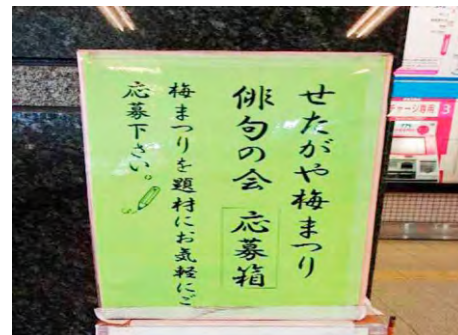 せたがや梅まつり
俳句の会 応募箱
梅まつりを題材にお気軽にご
応募下さい。
チャージ専用 3